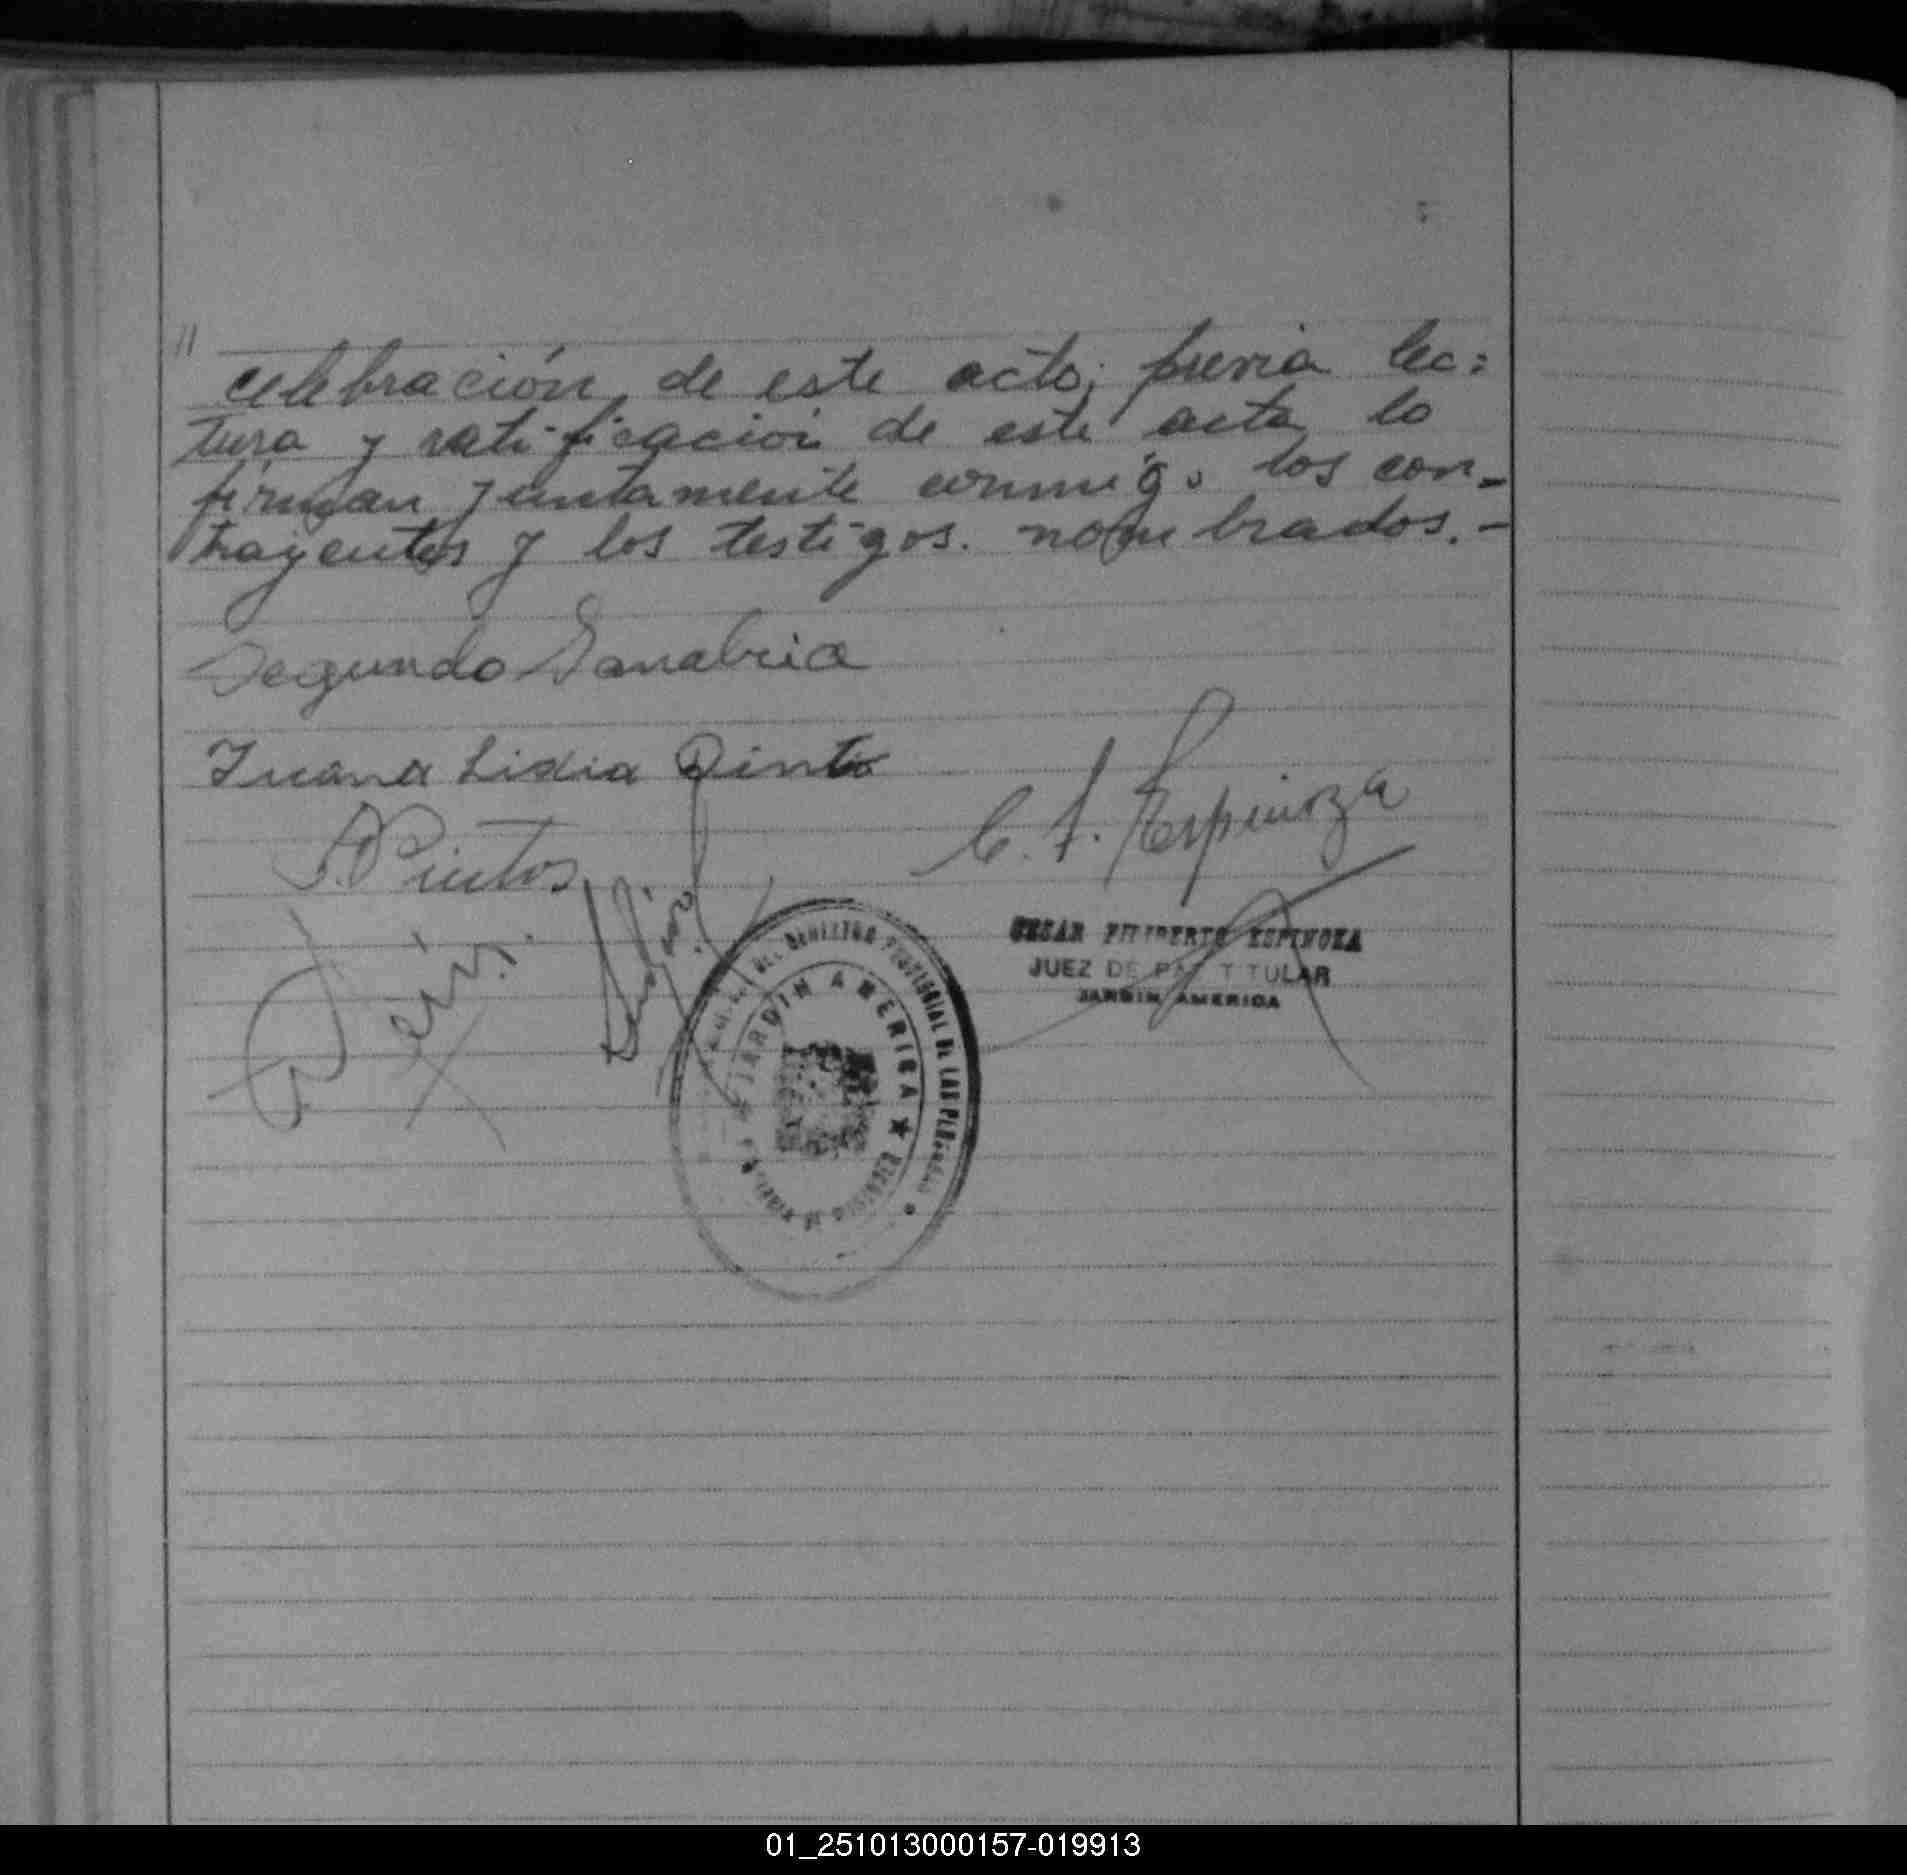 "
celebración de este acto; previa lec=
tura y ratificación de este acta la
firman juntamente conmigo los con-
trayentes y los testigos. nombrados.-
Segundo Sanabria
Juana Lidia Pinto
Pintos
C. F. Espinoza
CESAR FILIBERTO ESPINOZA
JUEZ DE PAZ TITULAR
JARDIN AMERICA
DEL REGISTRO PROVINCIAL DE LAS PERSONAS
JARDIN AMERICA
01_251013000157-019913